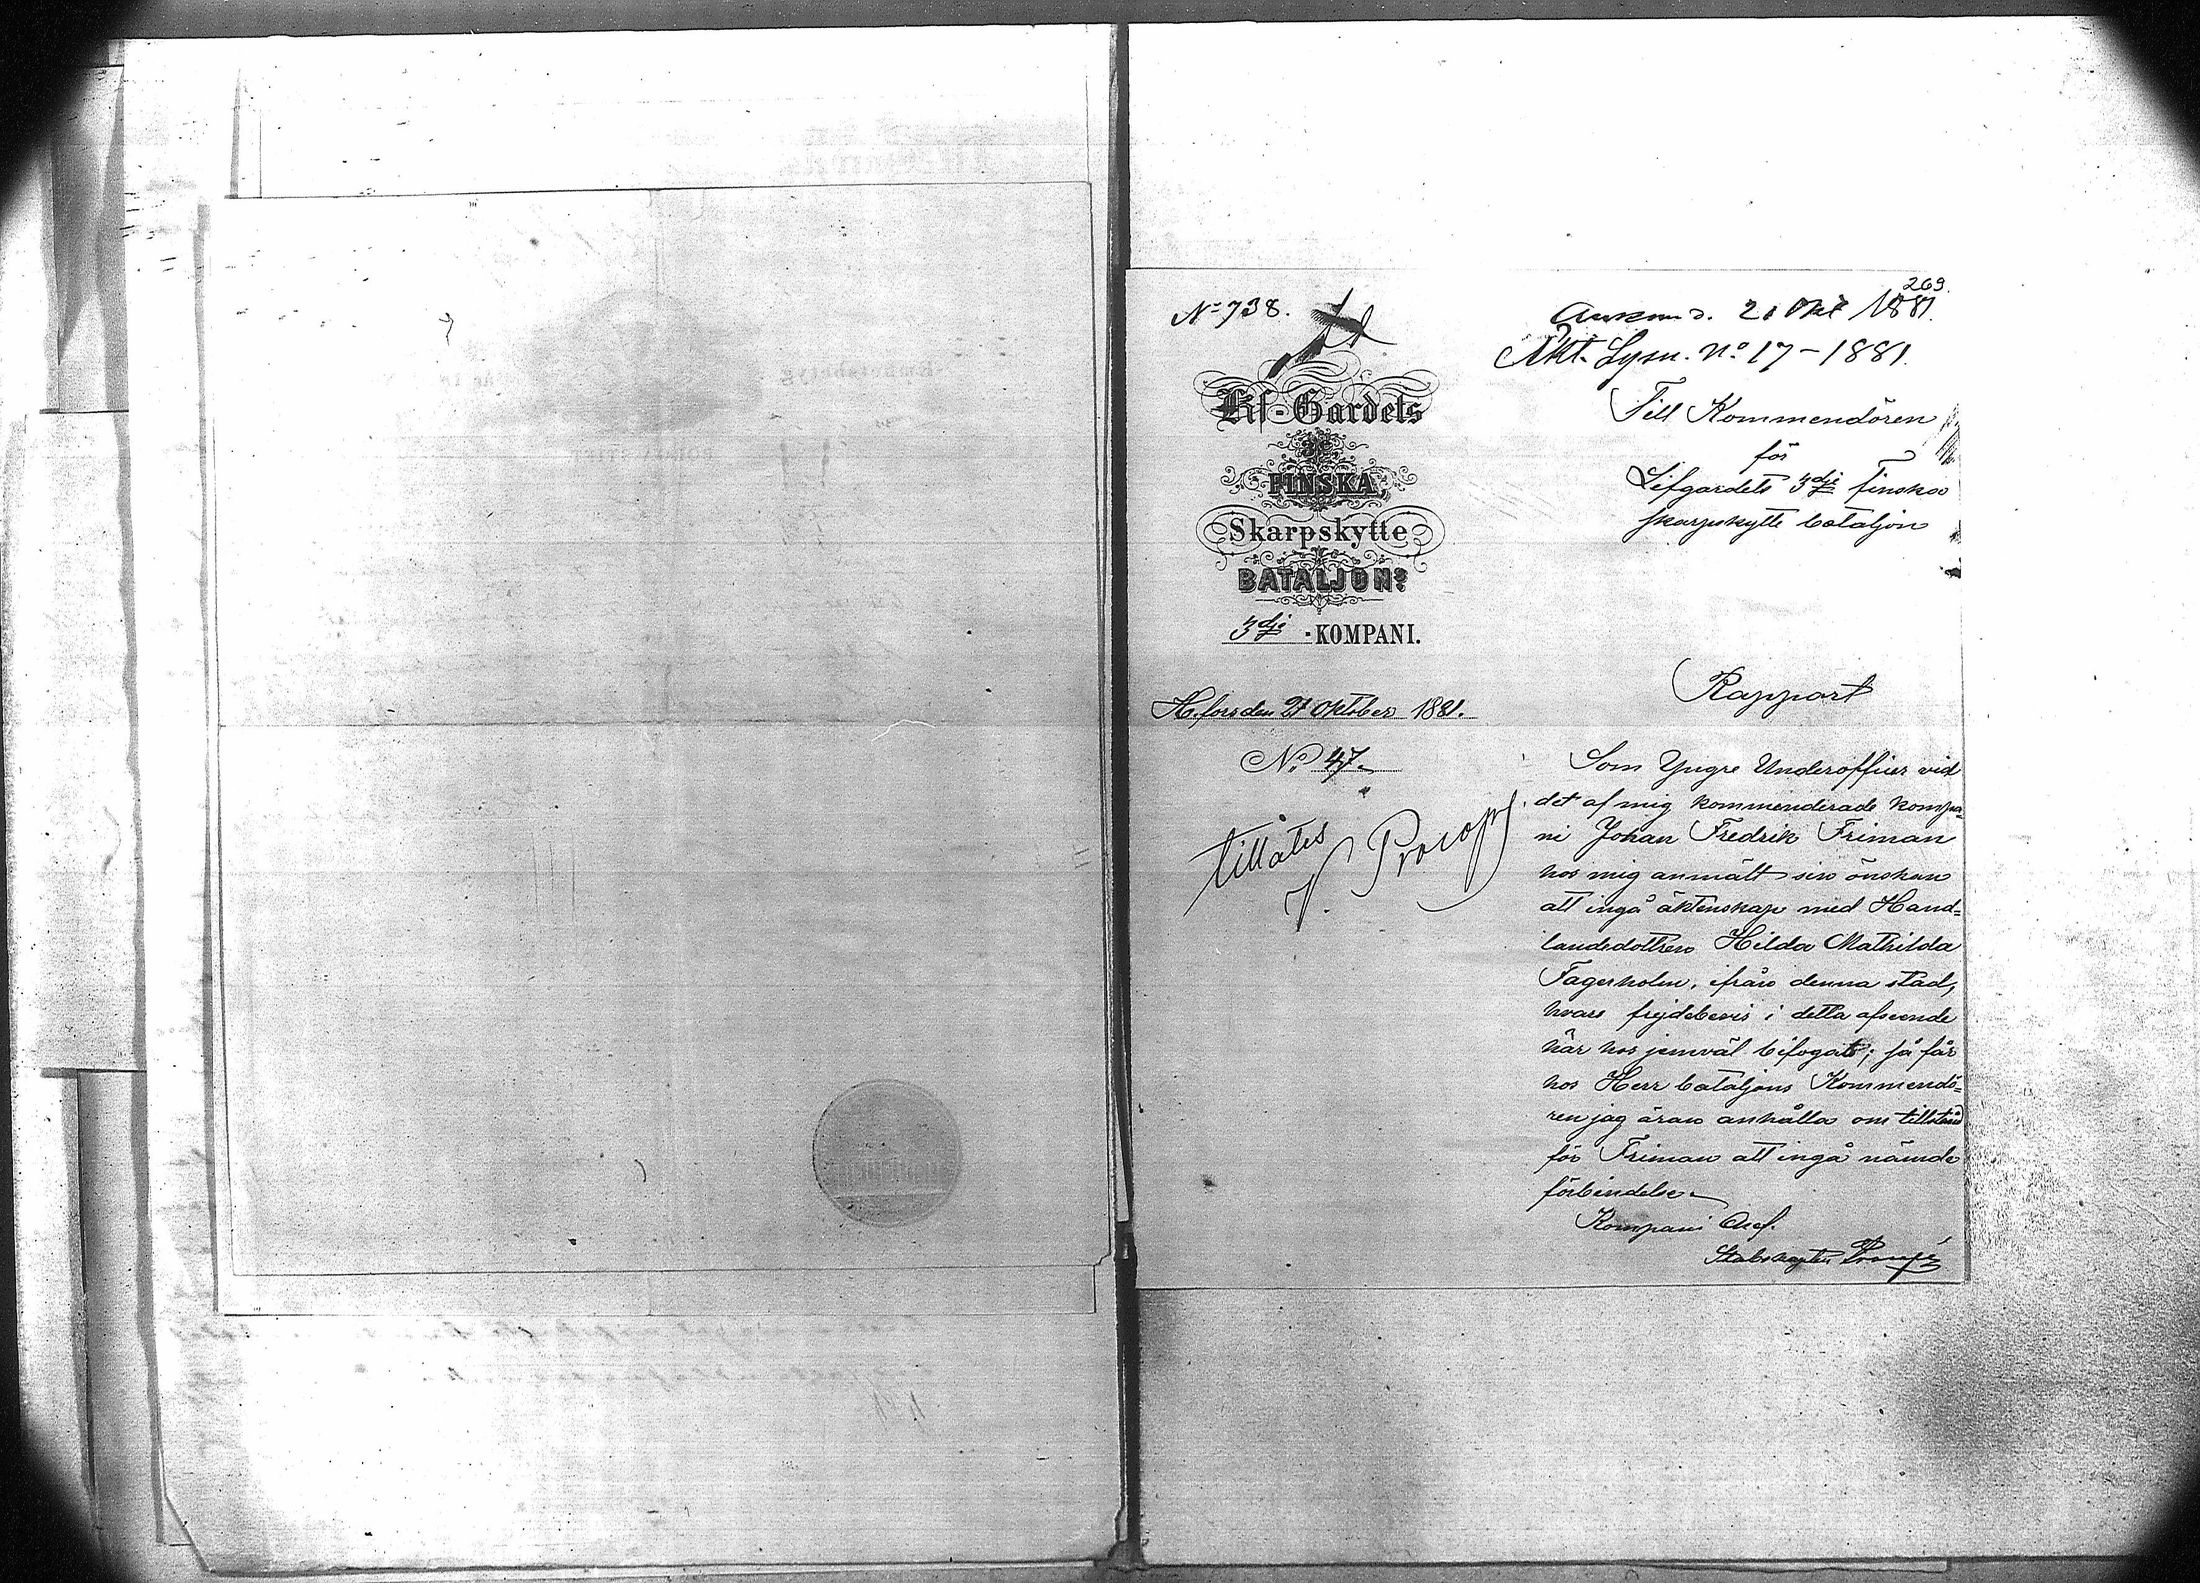 269.
No 738.
Ankom d. 21 Okt 1881.
Äkt. Lysn. No 17-1881.
Lif-Gardets
3e
FINSKA,
Skarpskytte
BATALJONs
3dje -KOMPANI.
H.fors den 21 Oktober 1881.
No 47.
tillåtes
V. Procopé
Till Kommendören
för
Lifgardets 3dje finska
skarpskytte bataljon
Rapport
Som Yngre Underofficer vid
det af mig kommenderade kompa=
ni Johan Fredrik Friman
hos mig anmält sin önskan
att ingå äktenskap med Hand=
landedottren Hilda Mathilda
Fagerholm, ifrån denna stad,
hvars frejdebevis i detta afseende
här hos jemväl bifogats; så får
hos Herr bataljons Kommendö=
ren jag äran anhålla om tillstånd
för Friman att ingå nämnde
förbindelse.
Kompani Chef.
Stabskapten